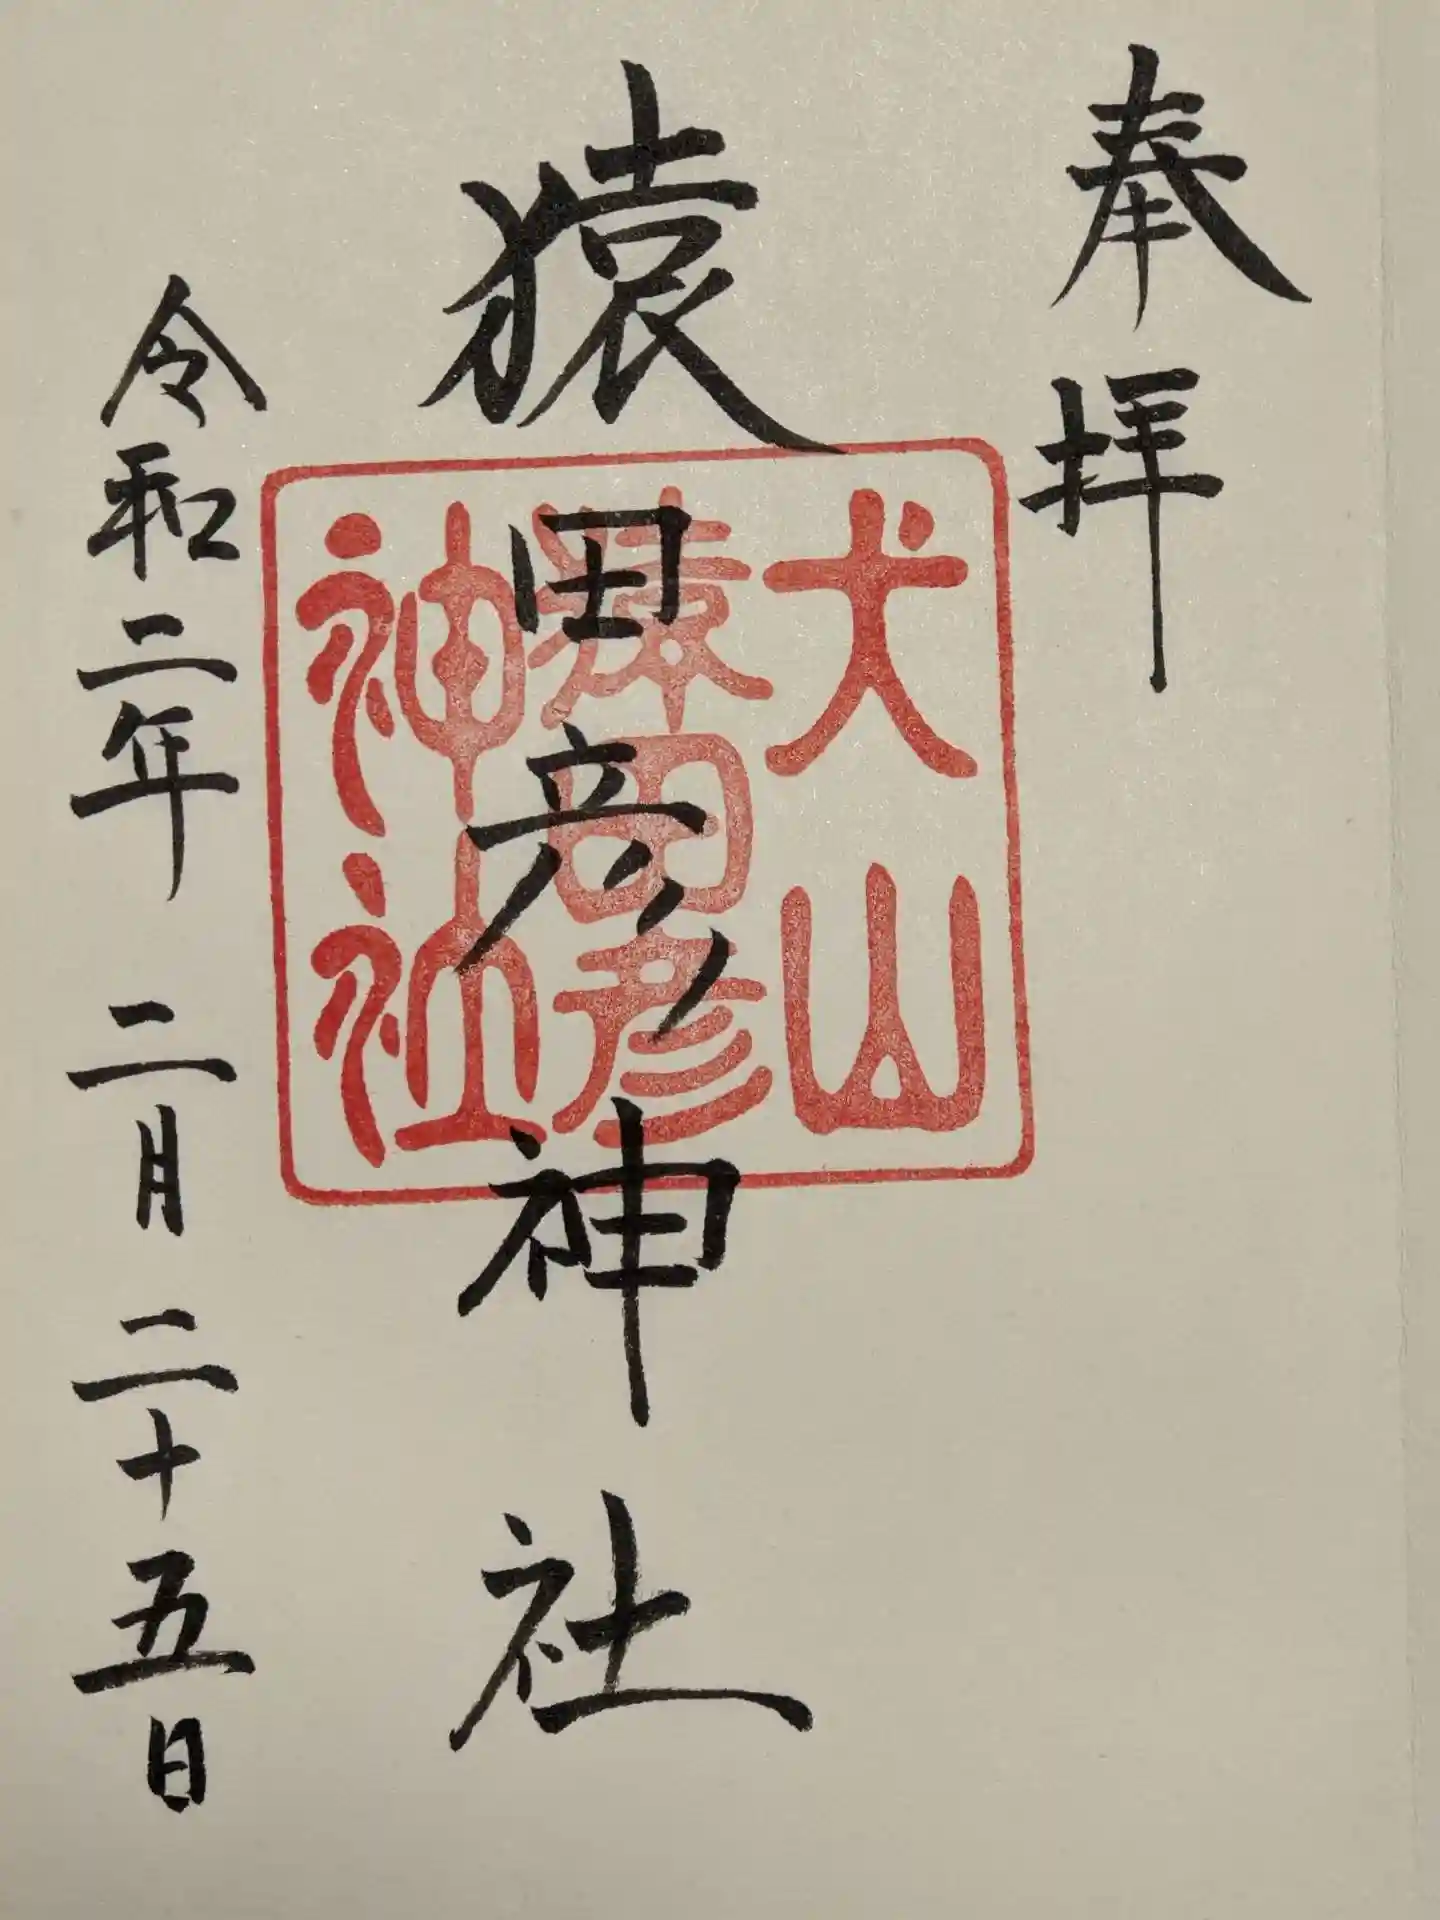 奉拝
猿田彦神社
令和二年二月二十五日
犬山
猿田彦
神社